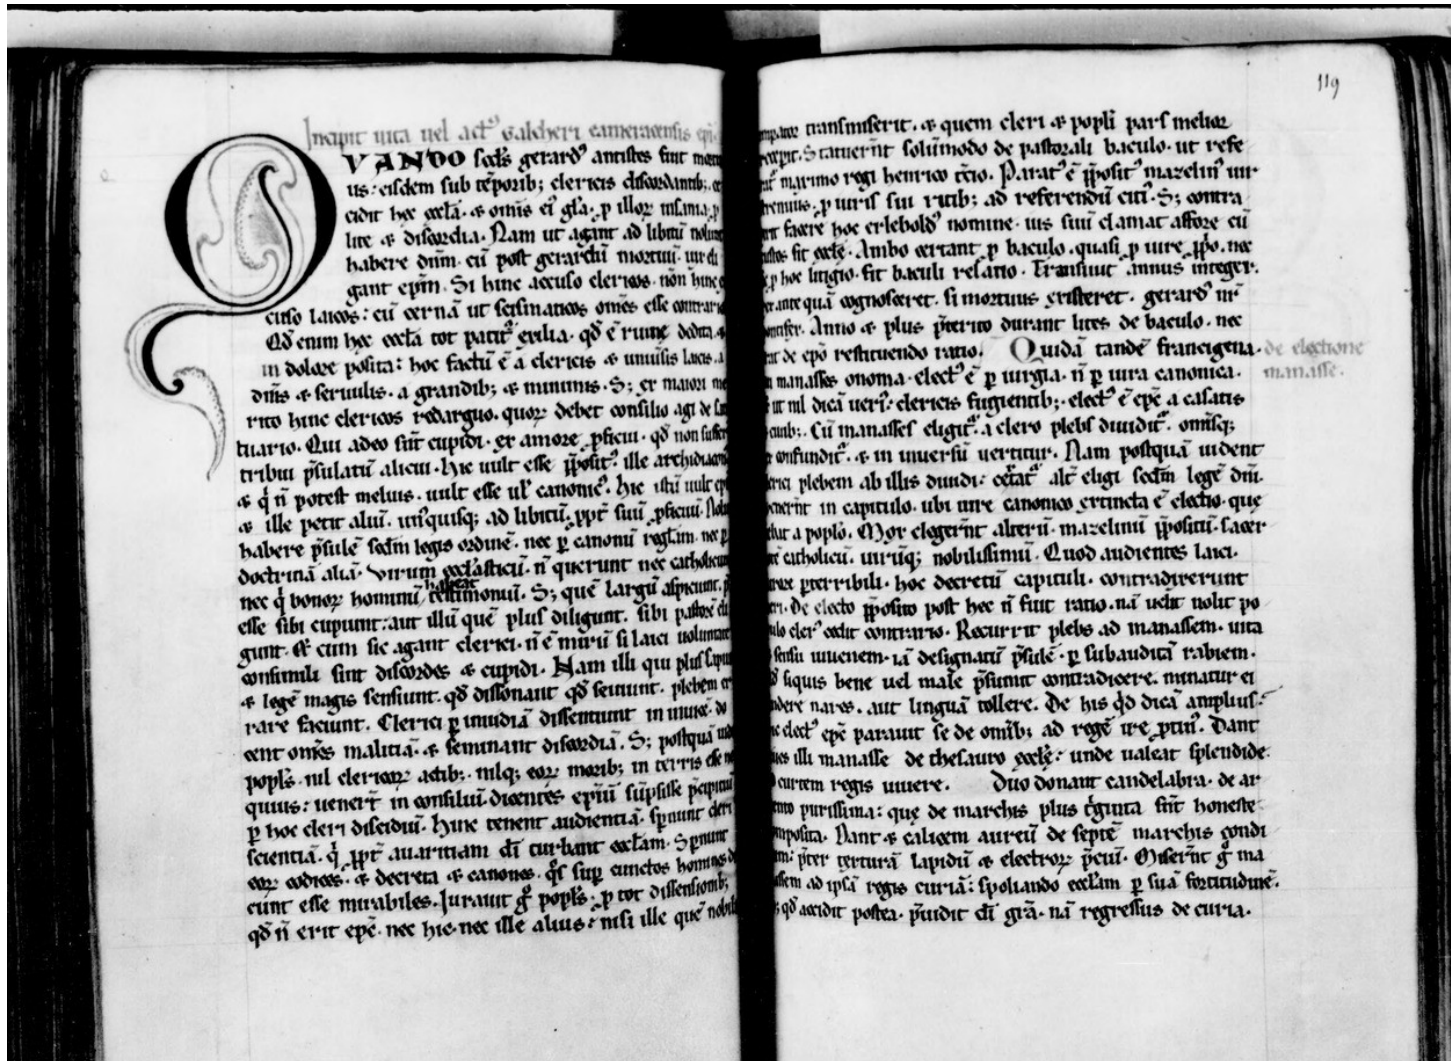 Incipit uita uel act᷒ Galcheri cameracensis ep̄i.
QVANDO sc̄ds gerard᷒ antistes fuit
us: eisdem sub tēporib; clericis discordantib;
cidit hec ecclā. ⁊ omīs ei᷒ gl̄a. ꝑ illoꝝ insaniā.
lite ⁊ discordia. Nam ut agant ad libitū
habere dn̄m. cū post gerardū mortuū.
gant ep̄m. Si hinc accuso clericos. non hinc
cuso laicos: cū cernā ut scismaticos om̄s esse
Qd̄ enim hec ecclā tot patit᷑ exilia. qd̄ ē ruinę dedita.
in dolore posita: hoc factū ē a clericis ⁊ uniūsis laicis. a
dn̄is ⁊ seruulis. a grandib; ⁊ minimis. S; ex maiori me
rito hinc clericos redarguo. quoꝝ debet consilio agi de
tuario. Qui adeo sūt cupidi. ex amore ꝓficui. qd̄ non
tribui p̄sulatū alicui. hic uult esse p̄posit᷒. ille
⁊ q̇ n̄ potest melius. uult esse ul᷒ canonic᷒. hic istū uult
⁊ ille petit aliū. un᷒quisq; ad libitū. ꝓpt̄ suū ꝓficuū.
habere p̄sulē scd̄m legis ordinē. nec ꝑ canonū reglam. nec ꝑ
doctrinā aliā. Virum ecclasticū. n̄ querunt nec catholicum
nec q̇ bonoꝝ hominū habeat testimoniū. S; quē largū aspiciunt.
esse sibi cupiunt: aut illū quē plus diligunt. sibi pastorē
gunt. Et cum sic agant clerici. n̄ ē mirū si laici uoluntate
consimili sint discordes ⁊ cupidi. Nam illi qui plus
⁊ legē magis sensiunt. qd̄ dissonant qd̄ sciunt. plebem er
rare faciunt. Clerici ꝑ inuidiā dissentiunt in inuicē. do
cent om̄s malitiā. ⁊ seminant discordiā. S; postquā
popls̄. nil clericoꝝ actib;. nilq; eoꝝ morib; in terris esse
quius: uenert̄ in consiliū. dicentes ep̄iū sūpsisse
ꝑ hoc cleri discidiū. Hinc tenent audientiā. sp̄nunt cleri
scientiā. q̇ ꝓpt̄ auaritiam dī turbant eccl̄am. Spernunt
eoꝝ codices. ⁊ decreta ⁊ canones. q̇s sup cunctos homines
cunt esse mirabiles. Iurauit ḡ popls̄. ꝑ tot dissensionib;
qd̄ n̄ erit ep̄c. nec hic. nec ille alius: nisi ille quē
119
transmiserit. ⁊ quem cleri ⁊ popli pars melior
Statuerūt solūmodo de pastorali baculo. ut refe
maximo regi henrico tc̄io. Parat᷒ ē p̄posit᷒ mazelin᷒ uir
ꝑ uiris sui ritib; ad referendū citi᷒. S; contra
facere hoc erlebold᷒ nomine. ius suū clamat affore cū
fit eccl̄ę. Ambo certant ꝑ baculo. quasi ꝑ iure ꝓp̄o. nec
ꝑ hoc litigio. fit baculi relatio. Transiuit annus integer.
ante quā cognosceret. si mortuus existeret. gerard᷒ nr̄
Anno ⁊ plus p̄terito durant lites de baculo. nec
de ep̄o restituendo ratio. Quidā tandē francigena.
de electione
manasse.
manasses onoma. elect᷒ ē ꝑ iurgia. n̄ ꝑ iura canonica.
ut nil dicā ueri᷒: clericis fugientib;. elect᷒ ē ep̄c a casatis
Cū manasses eligit᷑. a clero plebs diuidit᷑. omīsq;
confundit᷑. ⁊ in inuersū vertitur. Nam postquā uident
plebem ab illis diuidi: alt̄ eligi scd̄m legē dn̄i.
in capitulo. ubi iure canonico extincta ē electio. que
a poplo. Mox elegerūt alterū. mazelinū p̄positū. sacer
catholicū. uirūq; nobilissimū. Quod audientes laici.
ꝑterribili. hoc decretū capituli. contradixerunt
De electo p̄posito post hec n̄ fuit ratio. nā uelit nolit po
cler᷒ cedit contrario. Recurrit plebs ad manassem. uita
sensu iuuenem. iā designatū p̄sulē. ꝑ subauditā rabiem.
siquis bene uel male p̄sumit contradicere. minatur ei
nares. aut linguā tollere. De his qd̄ dicā amplius:
elect᷒ ep̄c parauit se de omīb; ad regē ire ꝓti᷒. Dant
illi manasse de thesauro eccl̄ę: unde ualeat splendide.
curtem regis uiuere. Duo donant candelabra. de ar
purissima: quę de marchis plus t̄ginta sūt honeste
Dant ⁊ calicem aureū de septē marchis condi
p̄ter texturā lapidū ⁊ electroꝝ p̄ciū. Miserūt ḡ ma
ad ipsā regis curiā: spoliando eccl̄am ꝑ suā fortitudinē.
qd̄ accidit postea. p̄uidit dī grā. nā regressus de curia.